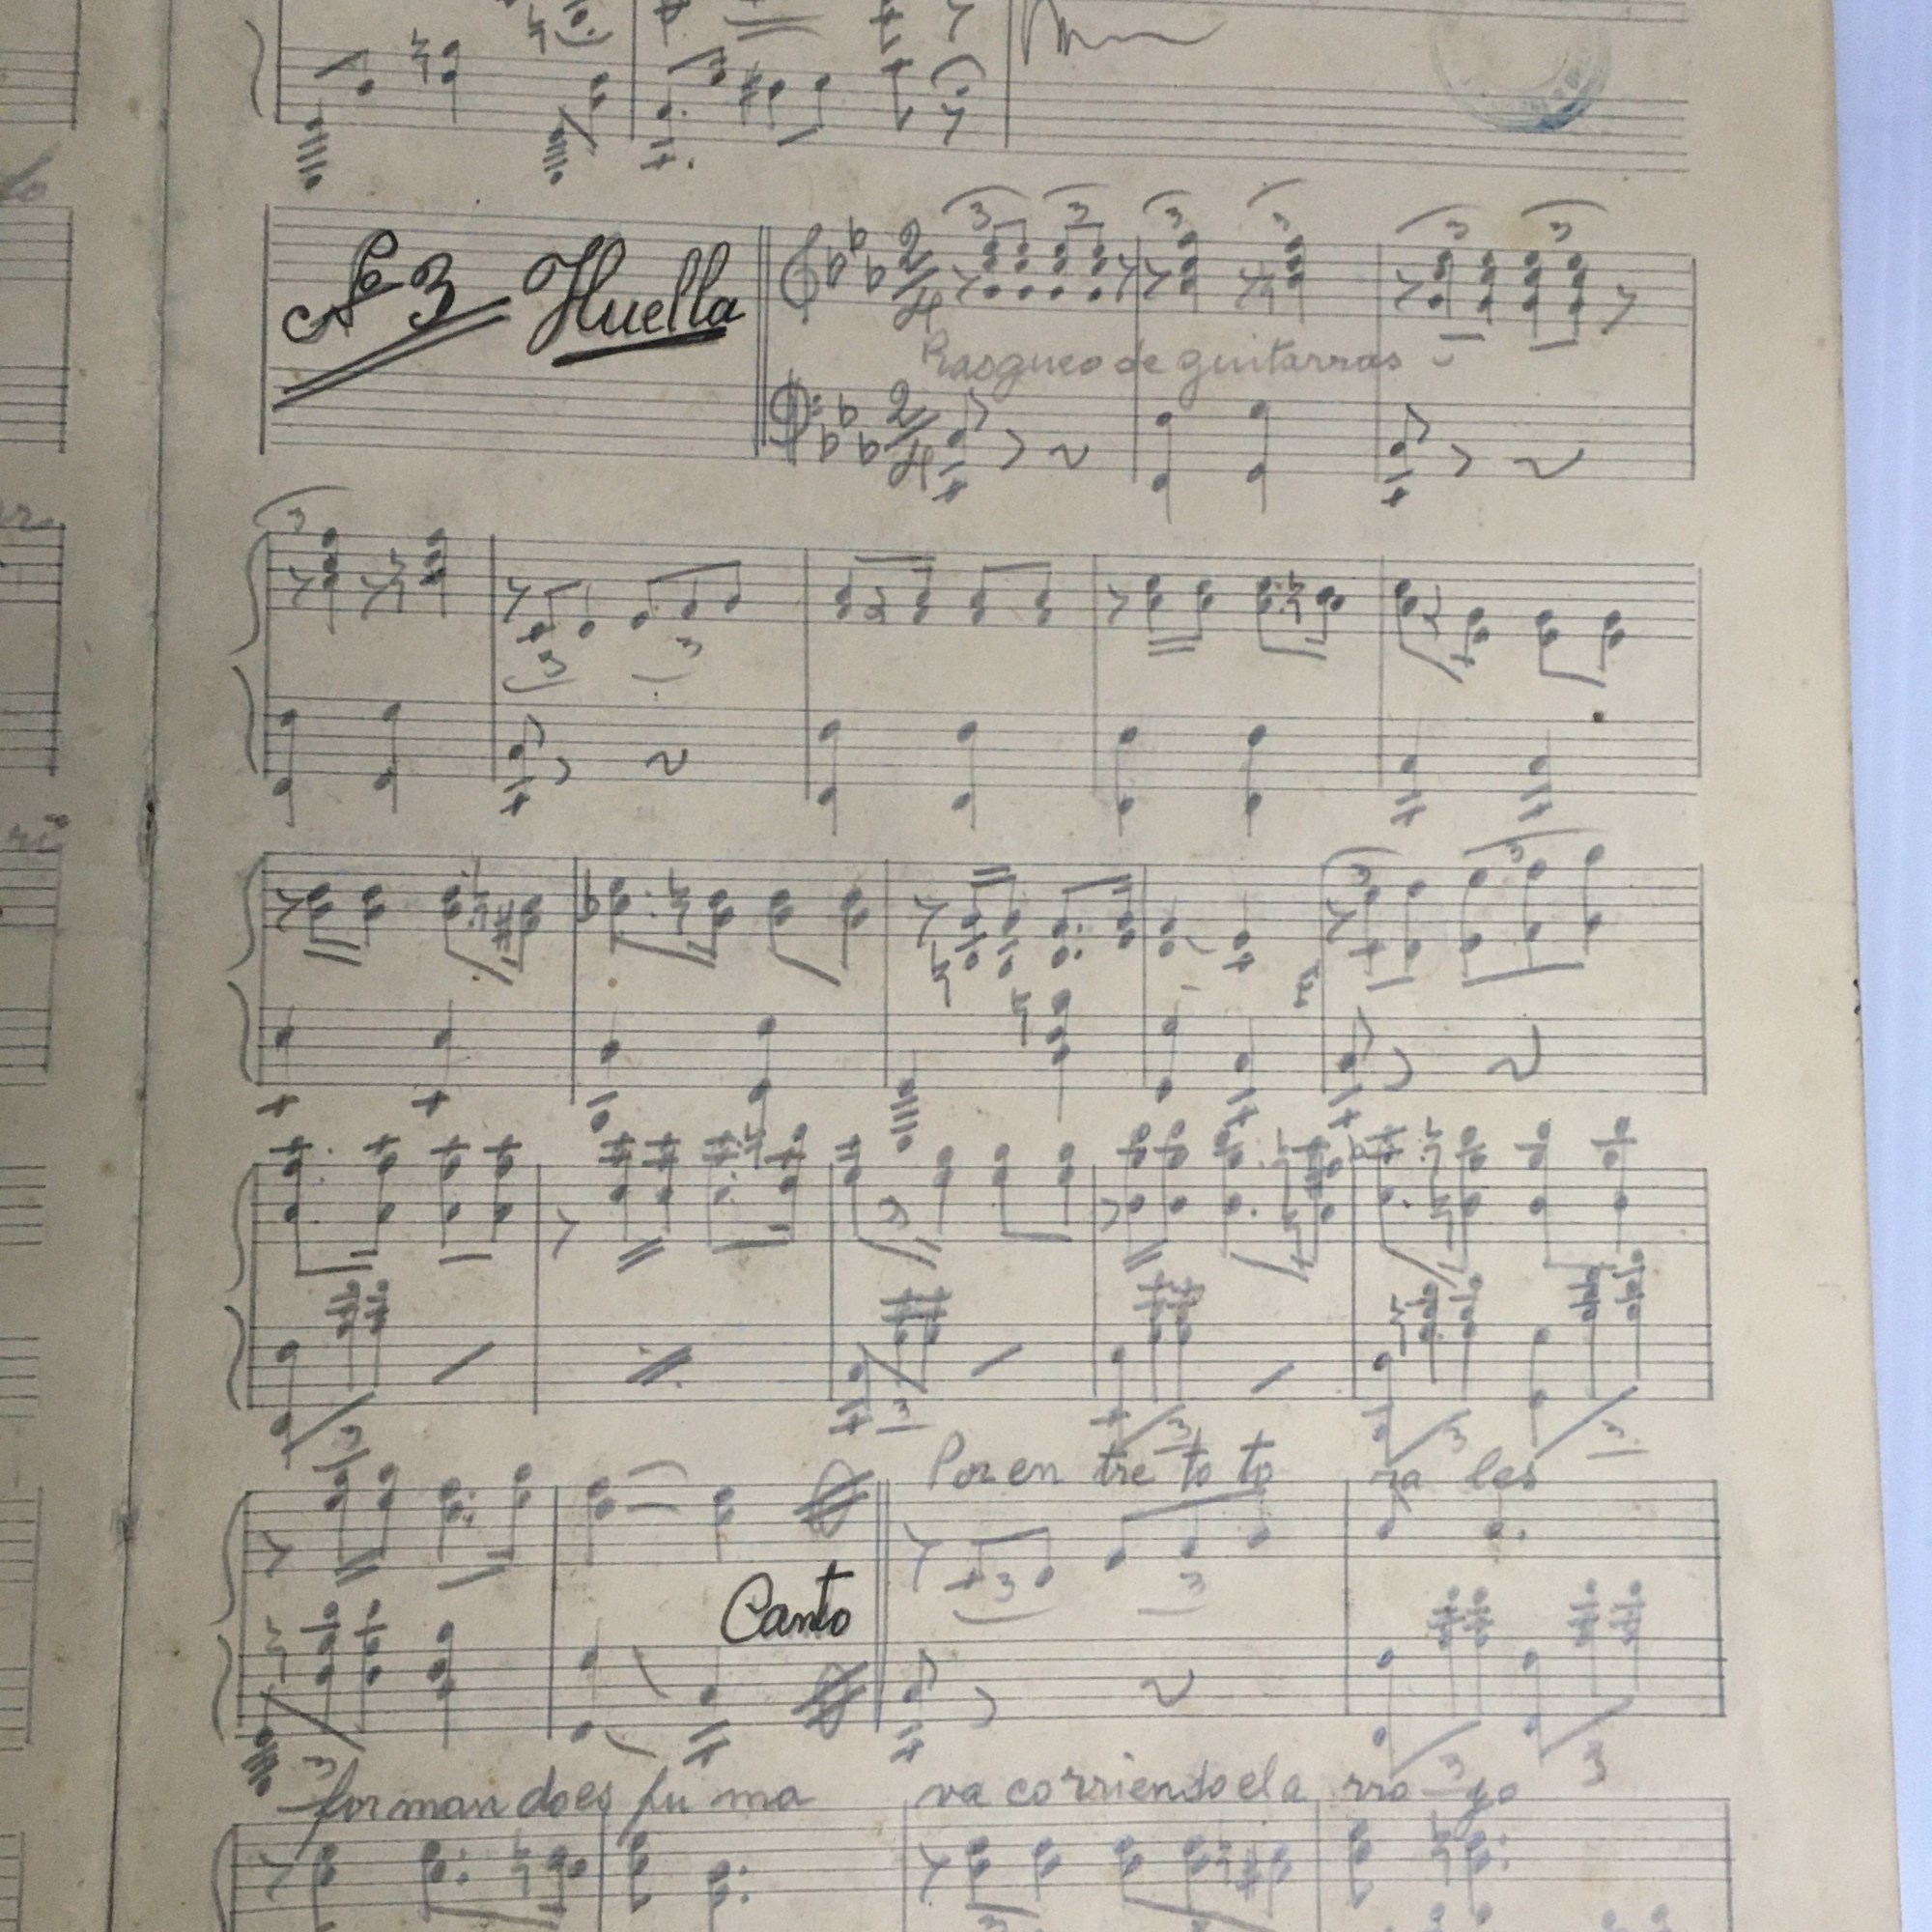 Nº 3 Huella
Rasgueo de guitarras
Por en tre to to ra les
Canto
for man do es pu ma va co rriendo el a rro yo